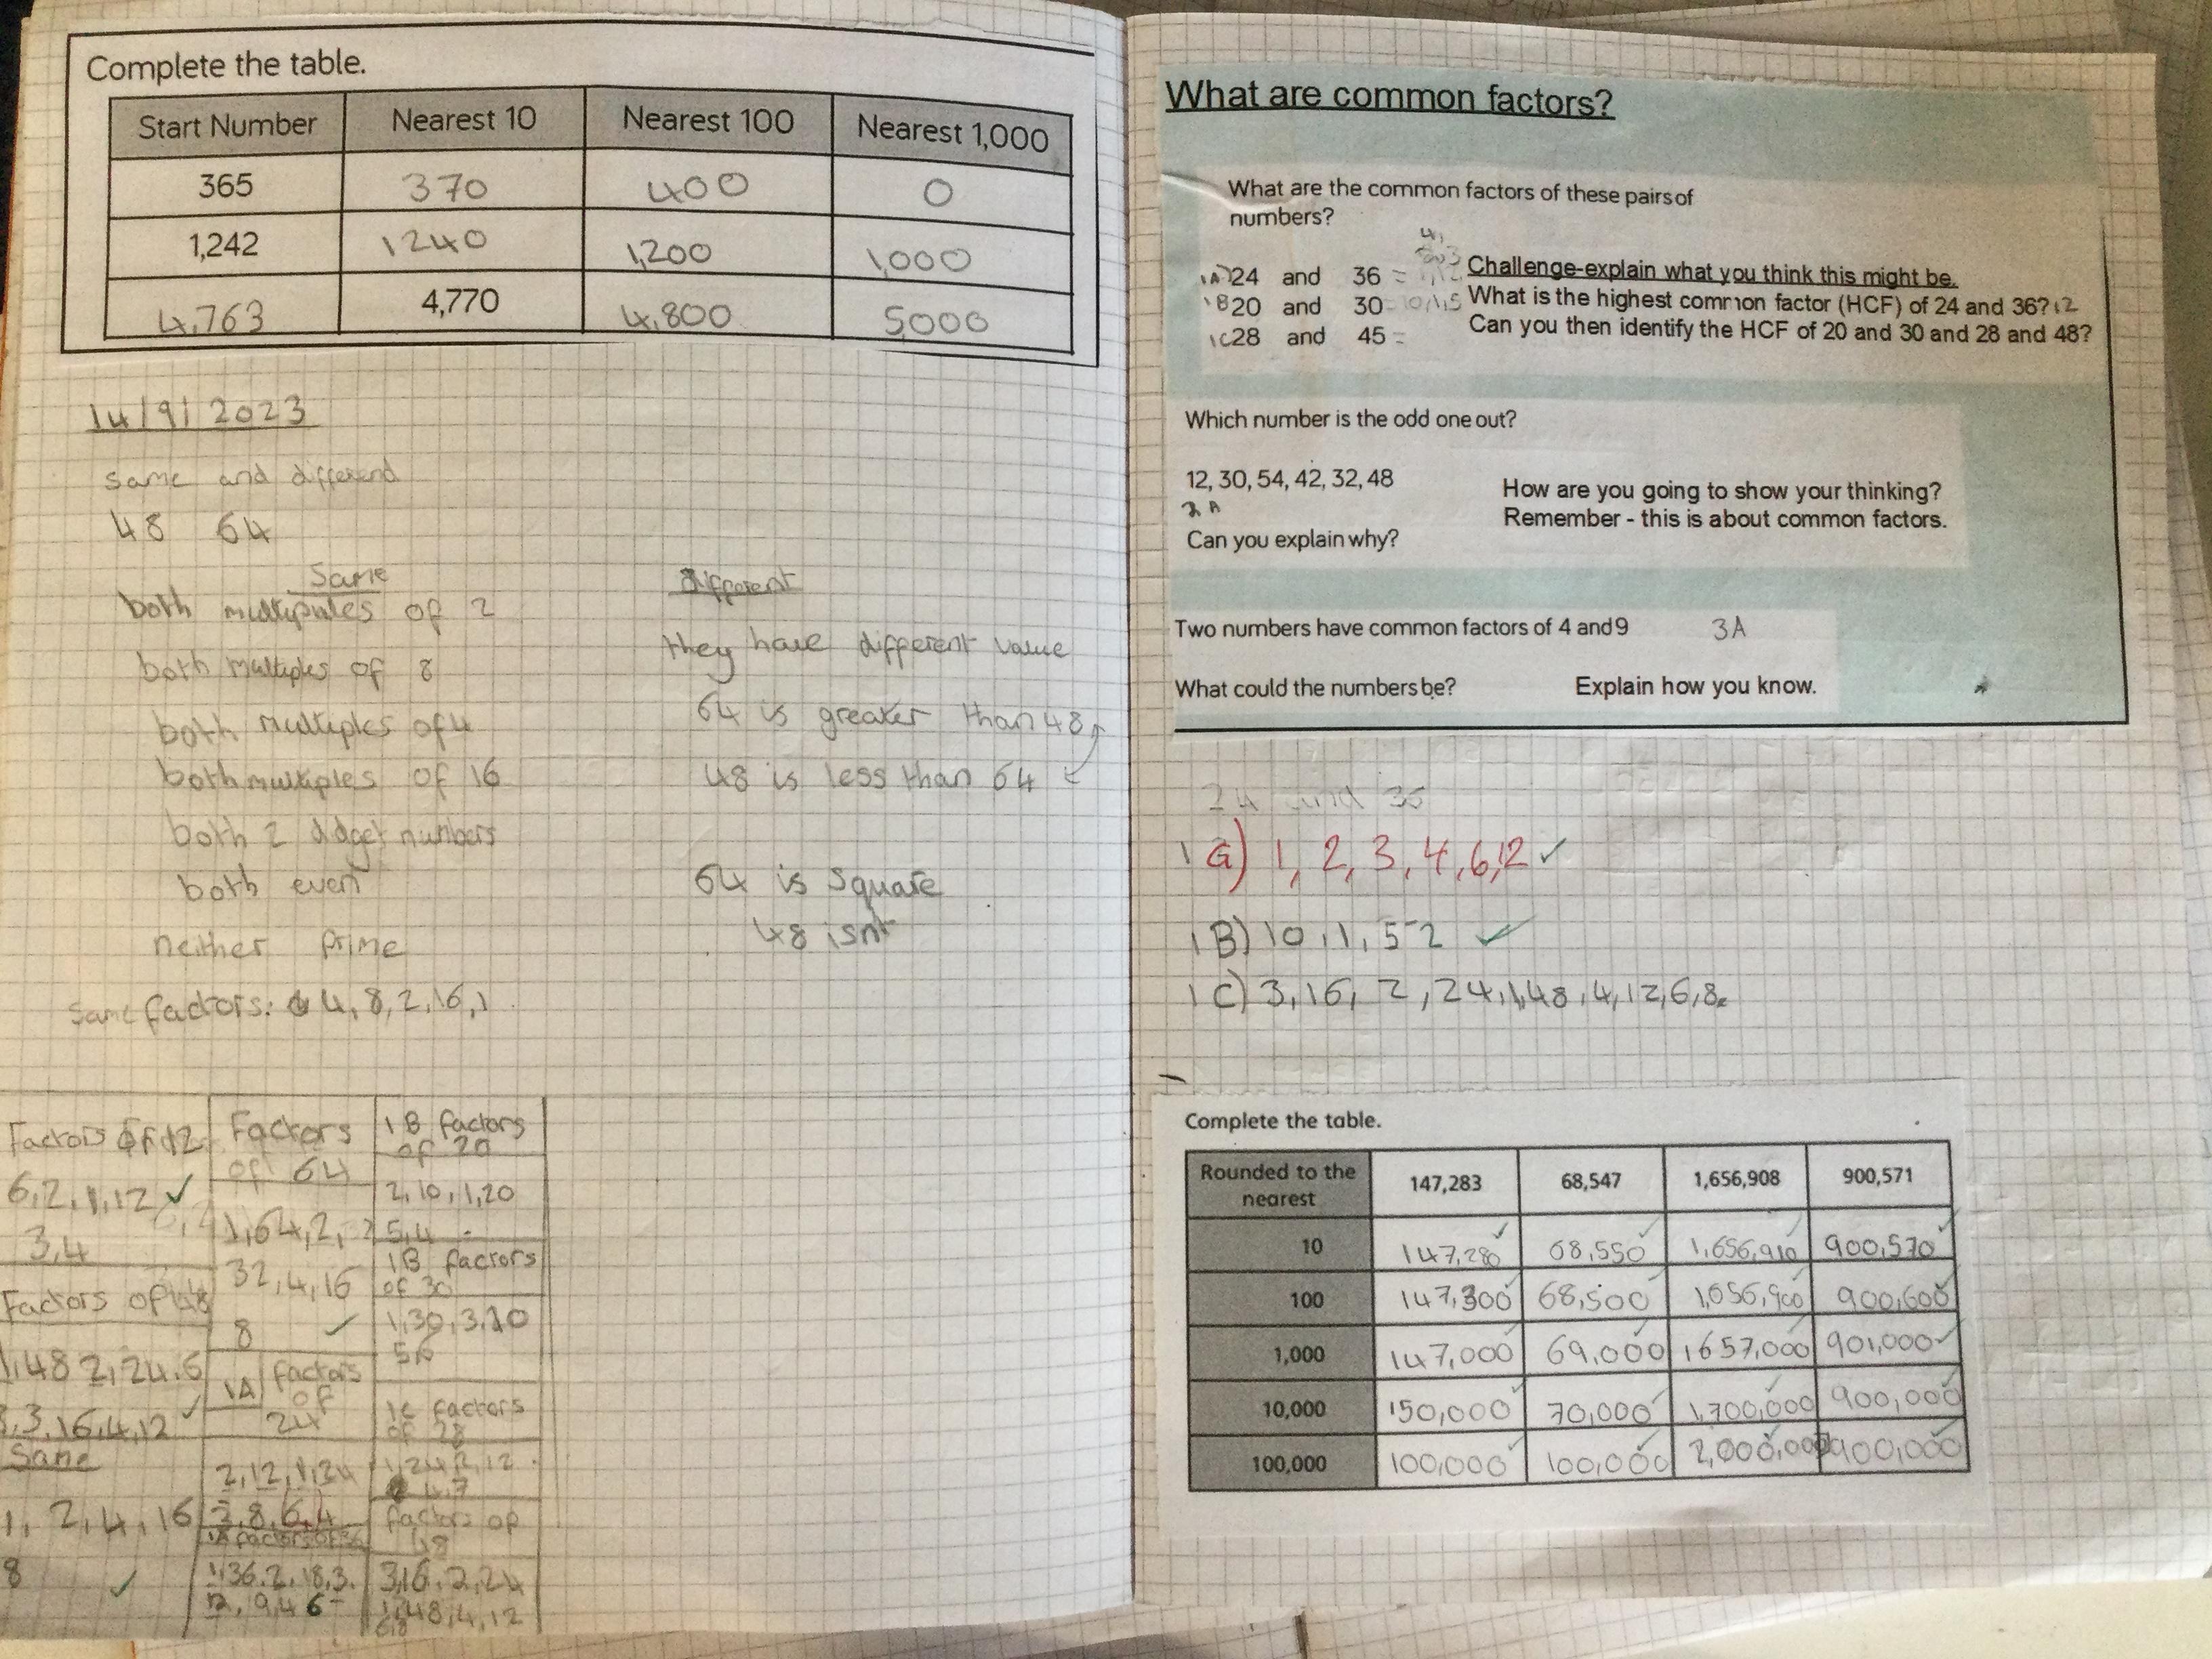 Complete the table.
Start Number Nearest 10 Nearest 100 Nearest 1,000
365 370 400 0
1,242 1240 1,200 1,000
4,763 4,770 4,800 5,000
14/9/2023
same and differend
48 64
Same
both multipules of 2
both multiples of 8
both multiples of 4
both multiples of 16
both 2 didget numbers
both even
neither prime
same factors: 4, 8, 2, 16, 1
Different
they have different value
64 is greater than 48
48 is less than 64
64 is Square
48 isnt
Factors of 12
6, 2, 1, 12 ✓
3, 4
Factors of 48
1, 48 2, 24, 6
3, 16, 4, 12 ✓
Same
1, 2, 4, 16
8 ✓
Factors
of 64
1, 64, 2,
32, 4, 16
8 ✓
1A factors
of
24
2, 12, 1, 24
3, 8, 6, 4
1A factors of 36
1, 36, 2, 18, 3,
12, 9, 4 6
1B factors
of 20
2, 10, 1, 20
5, 4
1B factors
of 30
1, 30, 3, 10
5, 6
1C factors
of 28
4, 7
factors of
48
3, 16, 2, 24
1, 48, 4, 12
6, 8
What are common factors?
What are the common factors of these pairs of
numbers?
1A) 24 and 36 =
1B 20 and 30
1C 28 and 45 =
Challenge-explain what you think this might be.
What is the highest common factor (HCF) of 24 and 36? 12
Can you then identify the HCF of 20 and 30 and 28 and 48?
Which number is the odd one out?
12, 30, 54, 42, 32, 48
2A
Can you explain why?
How are you going to show your thinking?
Remember - this is about common factors.
Two numbers have common factors of 4 and 9 3A
What could the numbers be? Explain how you know.
24 and 36
1 a) 1, 2, 3, 4, 6, 12 ✓
1 B) 10, 1, 5 2 ✓
1 C) 3, 16, 2, 24, 1, 48, 4, 12, 6, 8
Complete the table.
Rounded to the nearest 147,283 68,547 1,656,908 900,571
10 147,280 68,550 1,656,910 900,570
100 147,300 68,500 1,656,900 900,600
1,000 147,000 69,000 1657,000 901,000
10,000 150,000 70,000 1,700,000 900,000
100,000 100,000 100,000 2,000,000 900,000